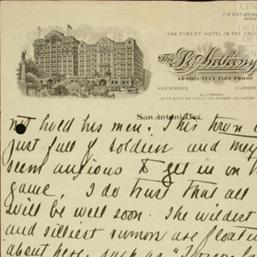 THE FINEST HOTEL IN THE SOU
The St. Anthony
ABSOLUTELY FIRE PROOF
San Antonio, Tex.
not hold his men. This town is
just full of soldiers and they
seem anxious to get in on the
game. I do trust that all
will be well soon. The wildest
and silliest rumors are floating
about here, such as